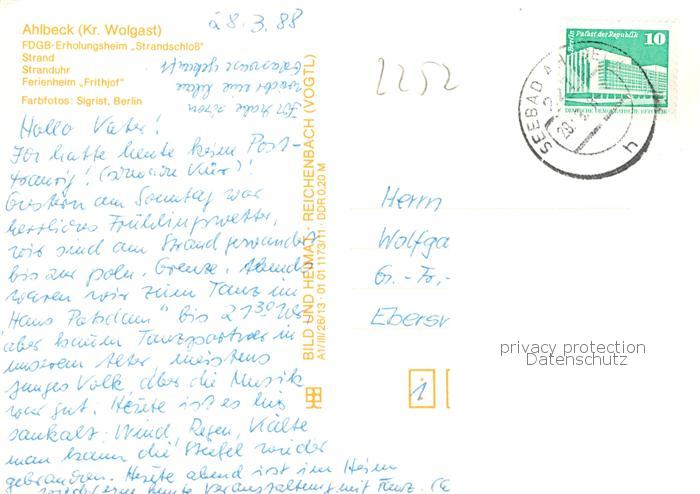 28.3.88
Ahlbeck (Kr. Wolgast)
FDGB-Erholungsheim „Strandschloß"
Strand
Stranduhr
Ferienheim „Frithjof"
Farbfotos: Sigrist, Berlin
Ich habe schon
wieder eine kleine
2252
Berlin Palast der Republik
10
DEUTSCHE DEMOKRATISCHE REPUBLIK
SEEBAD
h
BILD UND HEIMAT REICHENBACH (VOGTL)
A1/III/26/13 01 01 1173/11 DDR 0,20 M
Hallo Vater!
Ich hatte heute keinen Post-
Gestern am Sonntag war
herrliches Frühlingswetter,
wir sind am Strand gewandert
bis zur poln. Grenze. Abends
waren wir zum Tanz im
„Haus Potsdam" bis 21³⁰ Uhr
aber kaum Tanzpartner in
unserem Alter meistens
junges Volk, aber die Musik
war gut. Heute ist es hier
saukalt: Wind, Regen, Kälte
man kann die Stiefel wieder
gebrauchen. Heute abend ist im Heim
wieder eine bunte Veranstaltung mit Tanz.
Herrn
Wolfga
Gr.-Fr.-
Ebersw
privacy protection
Datenschutz